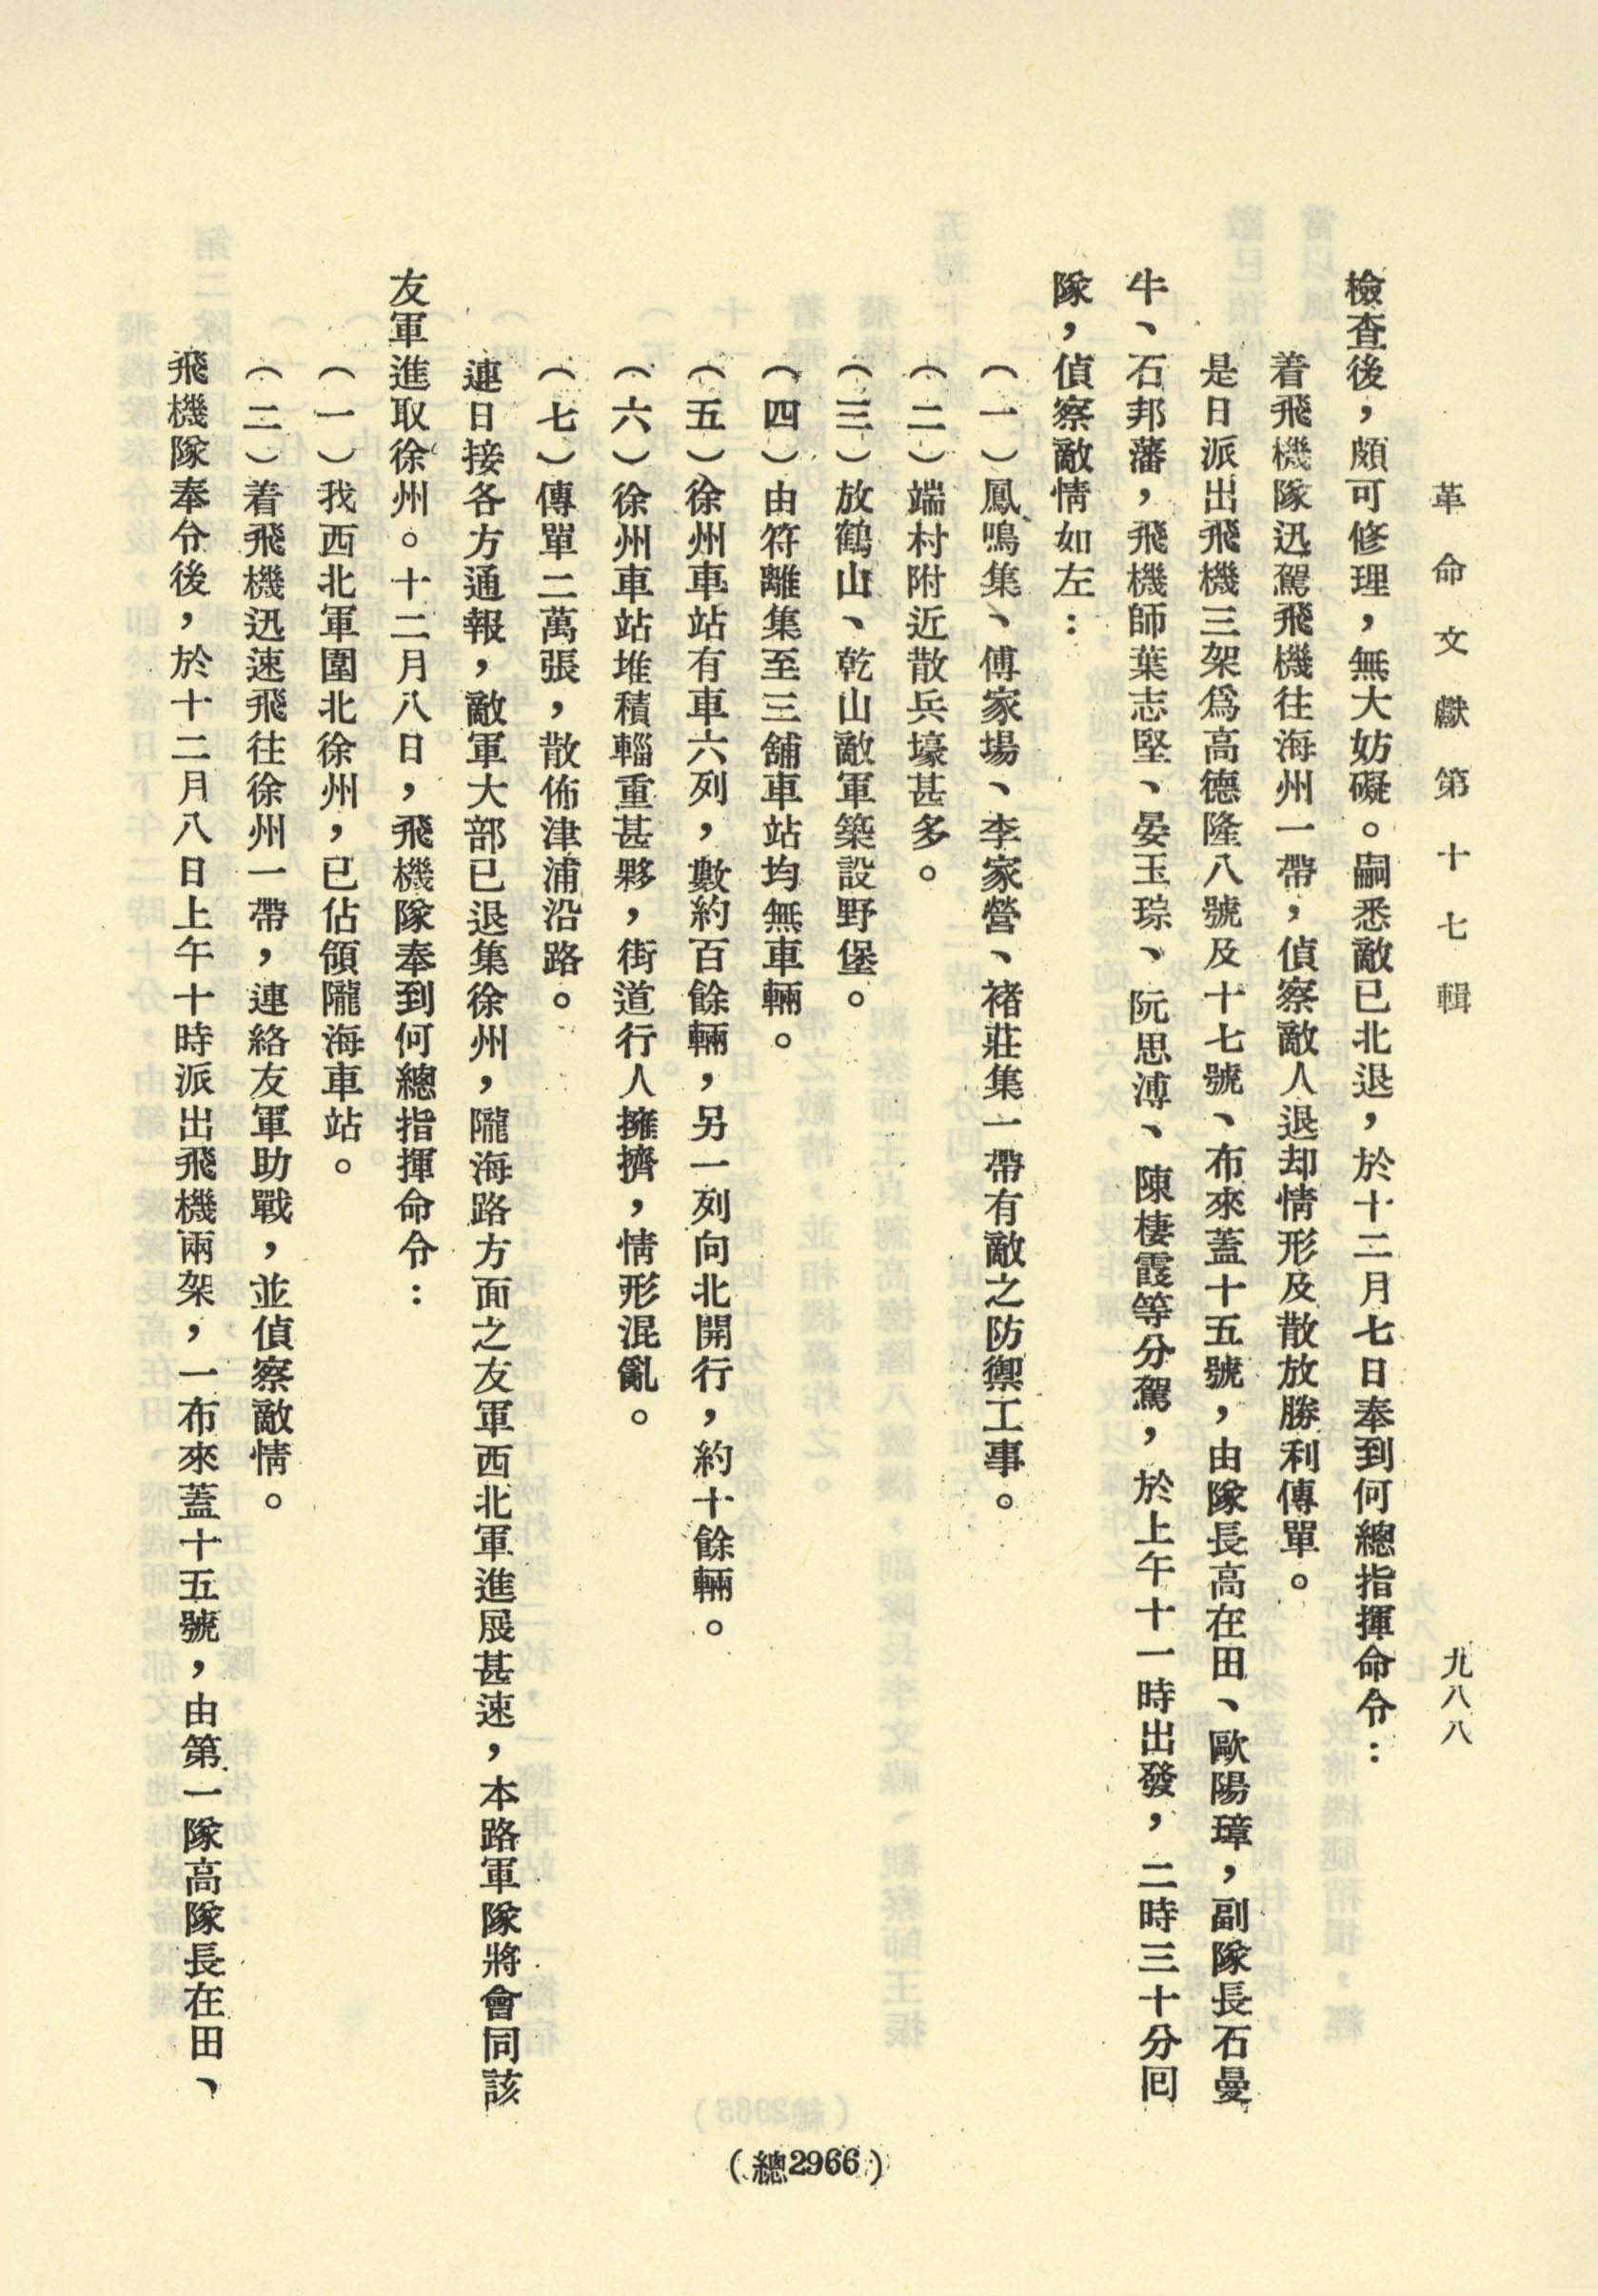 革命文獻第十七輯
九八八
檢查後，頗可修理，無大妨礙。嗣悉敵已北退，於十二月七日奉到何總指揮命令：
着飛機隊迅駕飛機往海州一帶，偵察敵人退却情形及散放勝利傳單。
是日派出飛機三架爲高德隆八號及十七號、布來蓋十五號，由隊長高在田、歐陽璋，副隊長石曼
牛、石邦藩，飛機師葉志堅、晏玉琮、阮思溥、陳棲霞等分駕，於上午十一時出發，二時三十分囘
隊，偵察敵情如左：
（一）鳳鳴集、傅家場、李家營、褚莊集一帶有敵之防禦工事。
（二）端村附近散兵壕甚多。
（三）放鶴山、乾山敵軍築設野堡。
（四）由符離集至三舖車站均無車輛。
（五）徐州車站有車六列，數約百餘輛，另一列向北開行，約十餘輛。
（六）徐州車站堆積輜重甚夥，街道行人擁擠，情形混亂。
（七）傳單二萬張，散佈津浦沿路。
連日接各方通報，敵軍大部已退集徐州，隴海路方面之友軍西北軍進展甚速，本路軍隊將會同該
友軍進取徐州。十二月八日，飛機隊奉到何總指揮命令：
（一）我西北軍圍北徐州，已佔領隴海車站。
（二）着飛機迅速飛往徐州一帶，連絡友軍助戰，並偵察敵情。
飛機隊奉令後，於十二月八日上午十時派出飛機兩架，一布來蓋十五號，由第一隊高隊長在田、
（總2966）